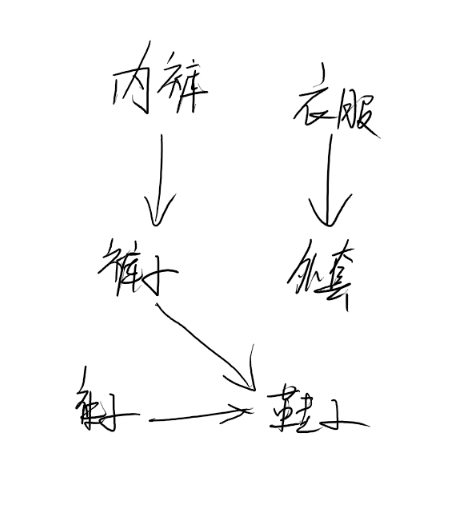 内裤 衣服
裤子 外套
鞋子